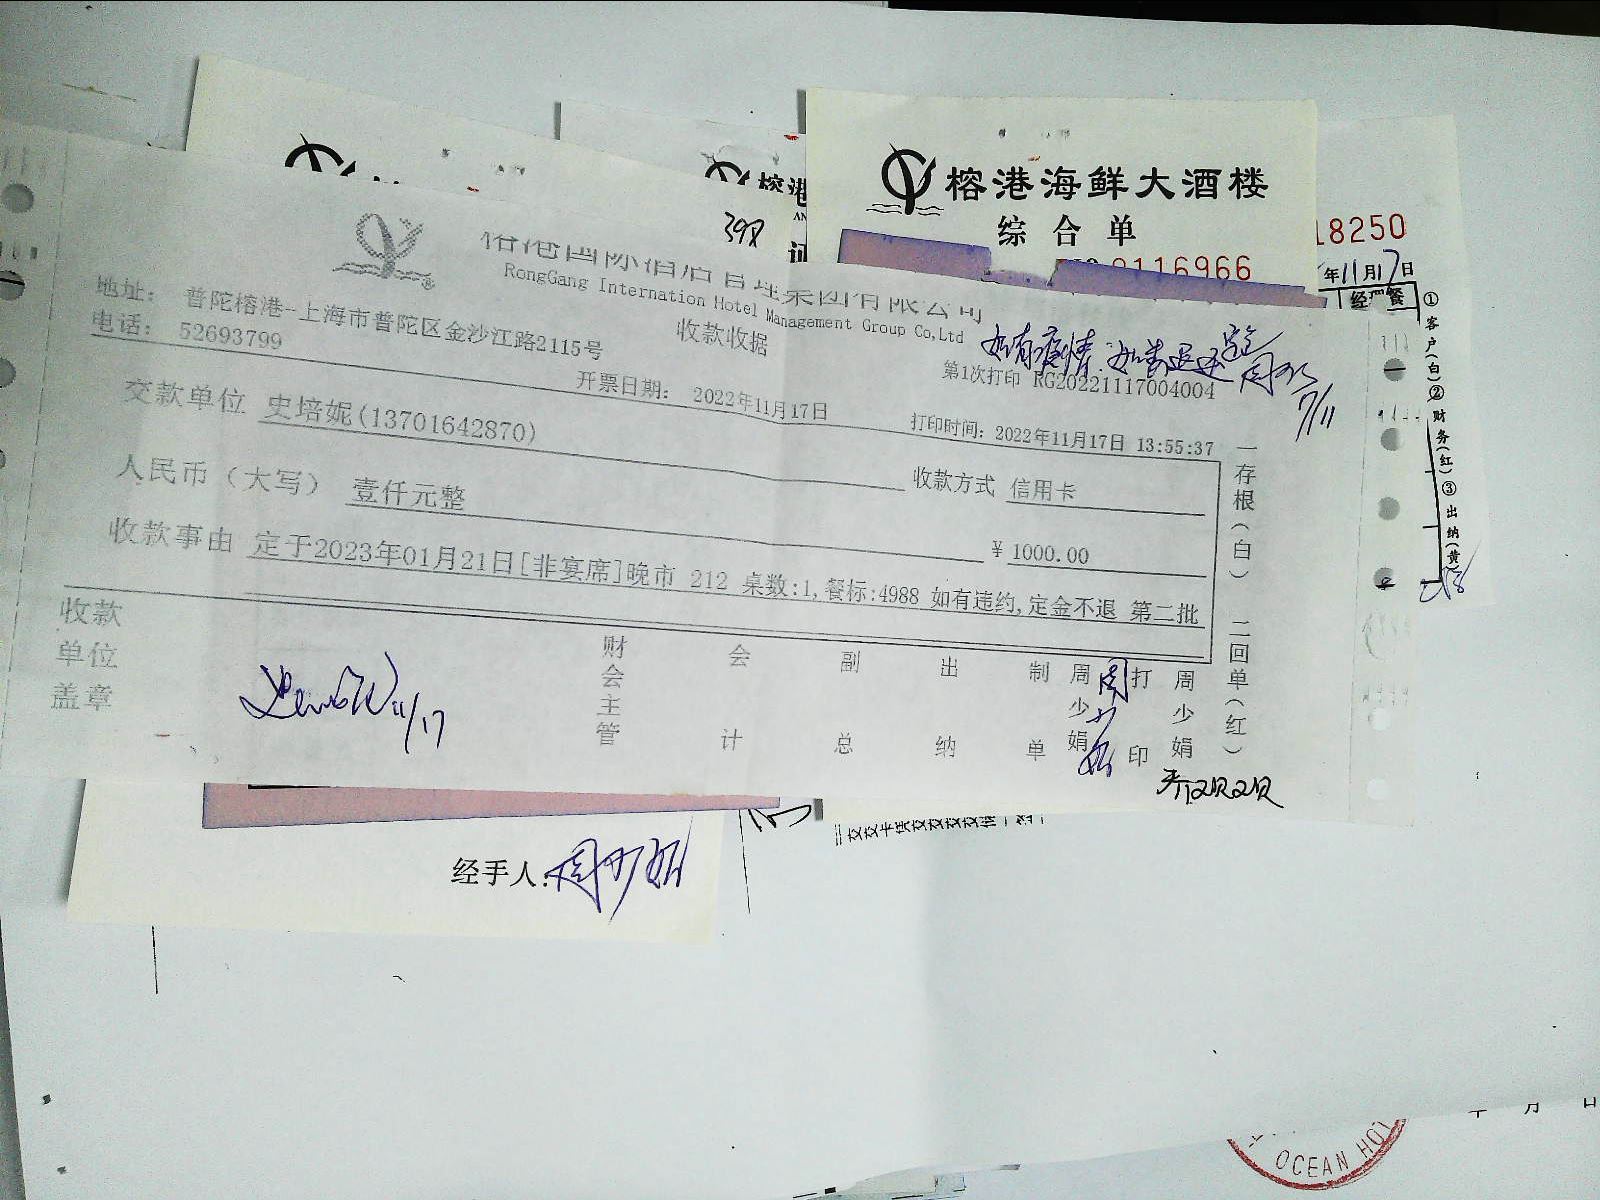 榕港海鲜大酒楼
综合单
9116966
18250
年11月17日
398
榕港国际酒店管理集团有限公司
RongGang Internation Hotel Management Group Co,Ltd
地址： 普陀榕港-上海市普陀区金沙江路2115号
电话： 52693799
收款收据
如有疫情，如数退还定金
周少娟
17/11
第1次打印 RG20221117004004
开票日期： 2022年11月17日
打印时间：2022年11月17日 13:55:37
交款单位 史培妮(13701642870)
收款方式 信用卡
人民币（大写） 壹仟元整
¥ 1000.00
收款事由 定于2023年01月21日[非宴席]晚市 212 桌数:1,餐标:4988 如有违约,定金不退 第二批
一存根（白） 二回单（红）
收款单位盖章
11/17
财会主管
会计
副总
出纳
制单
周少娟
周少娟
打印
周少娟
①客户(白)②财务(红)③出纳(黄)
经手人：周少娟
OCEAN HOT